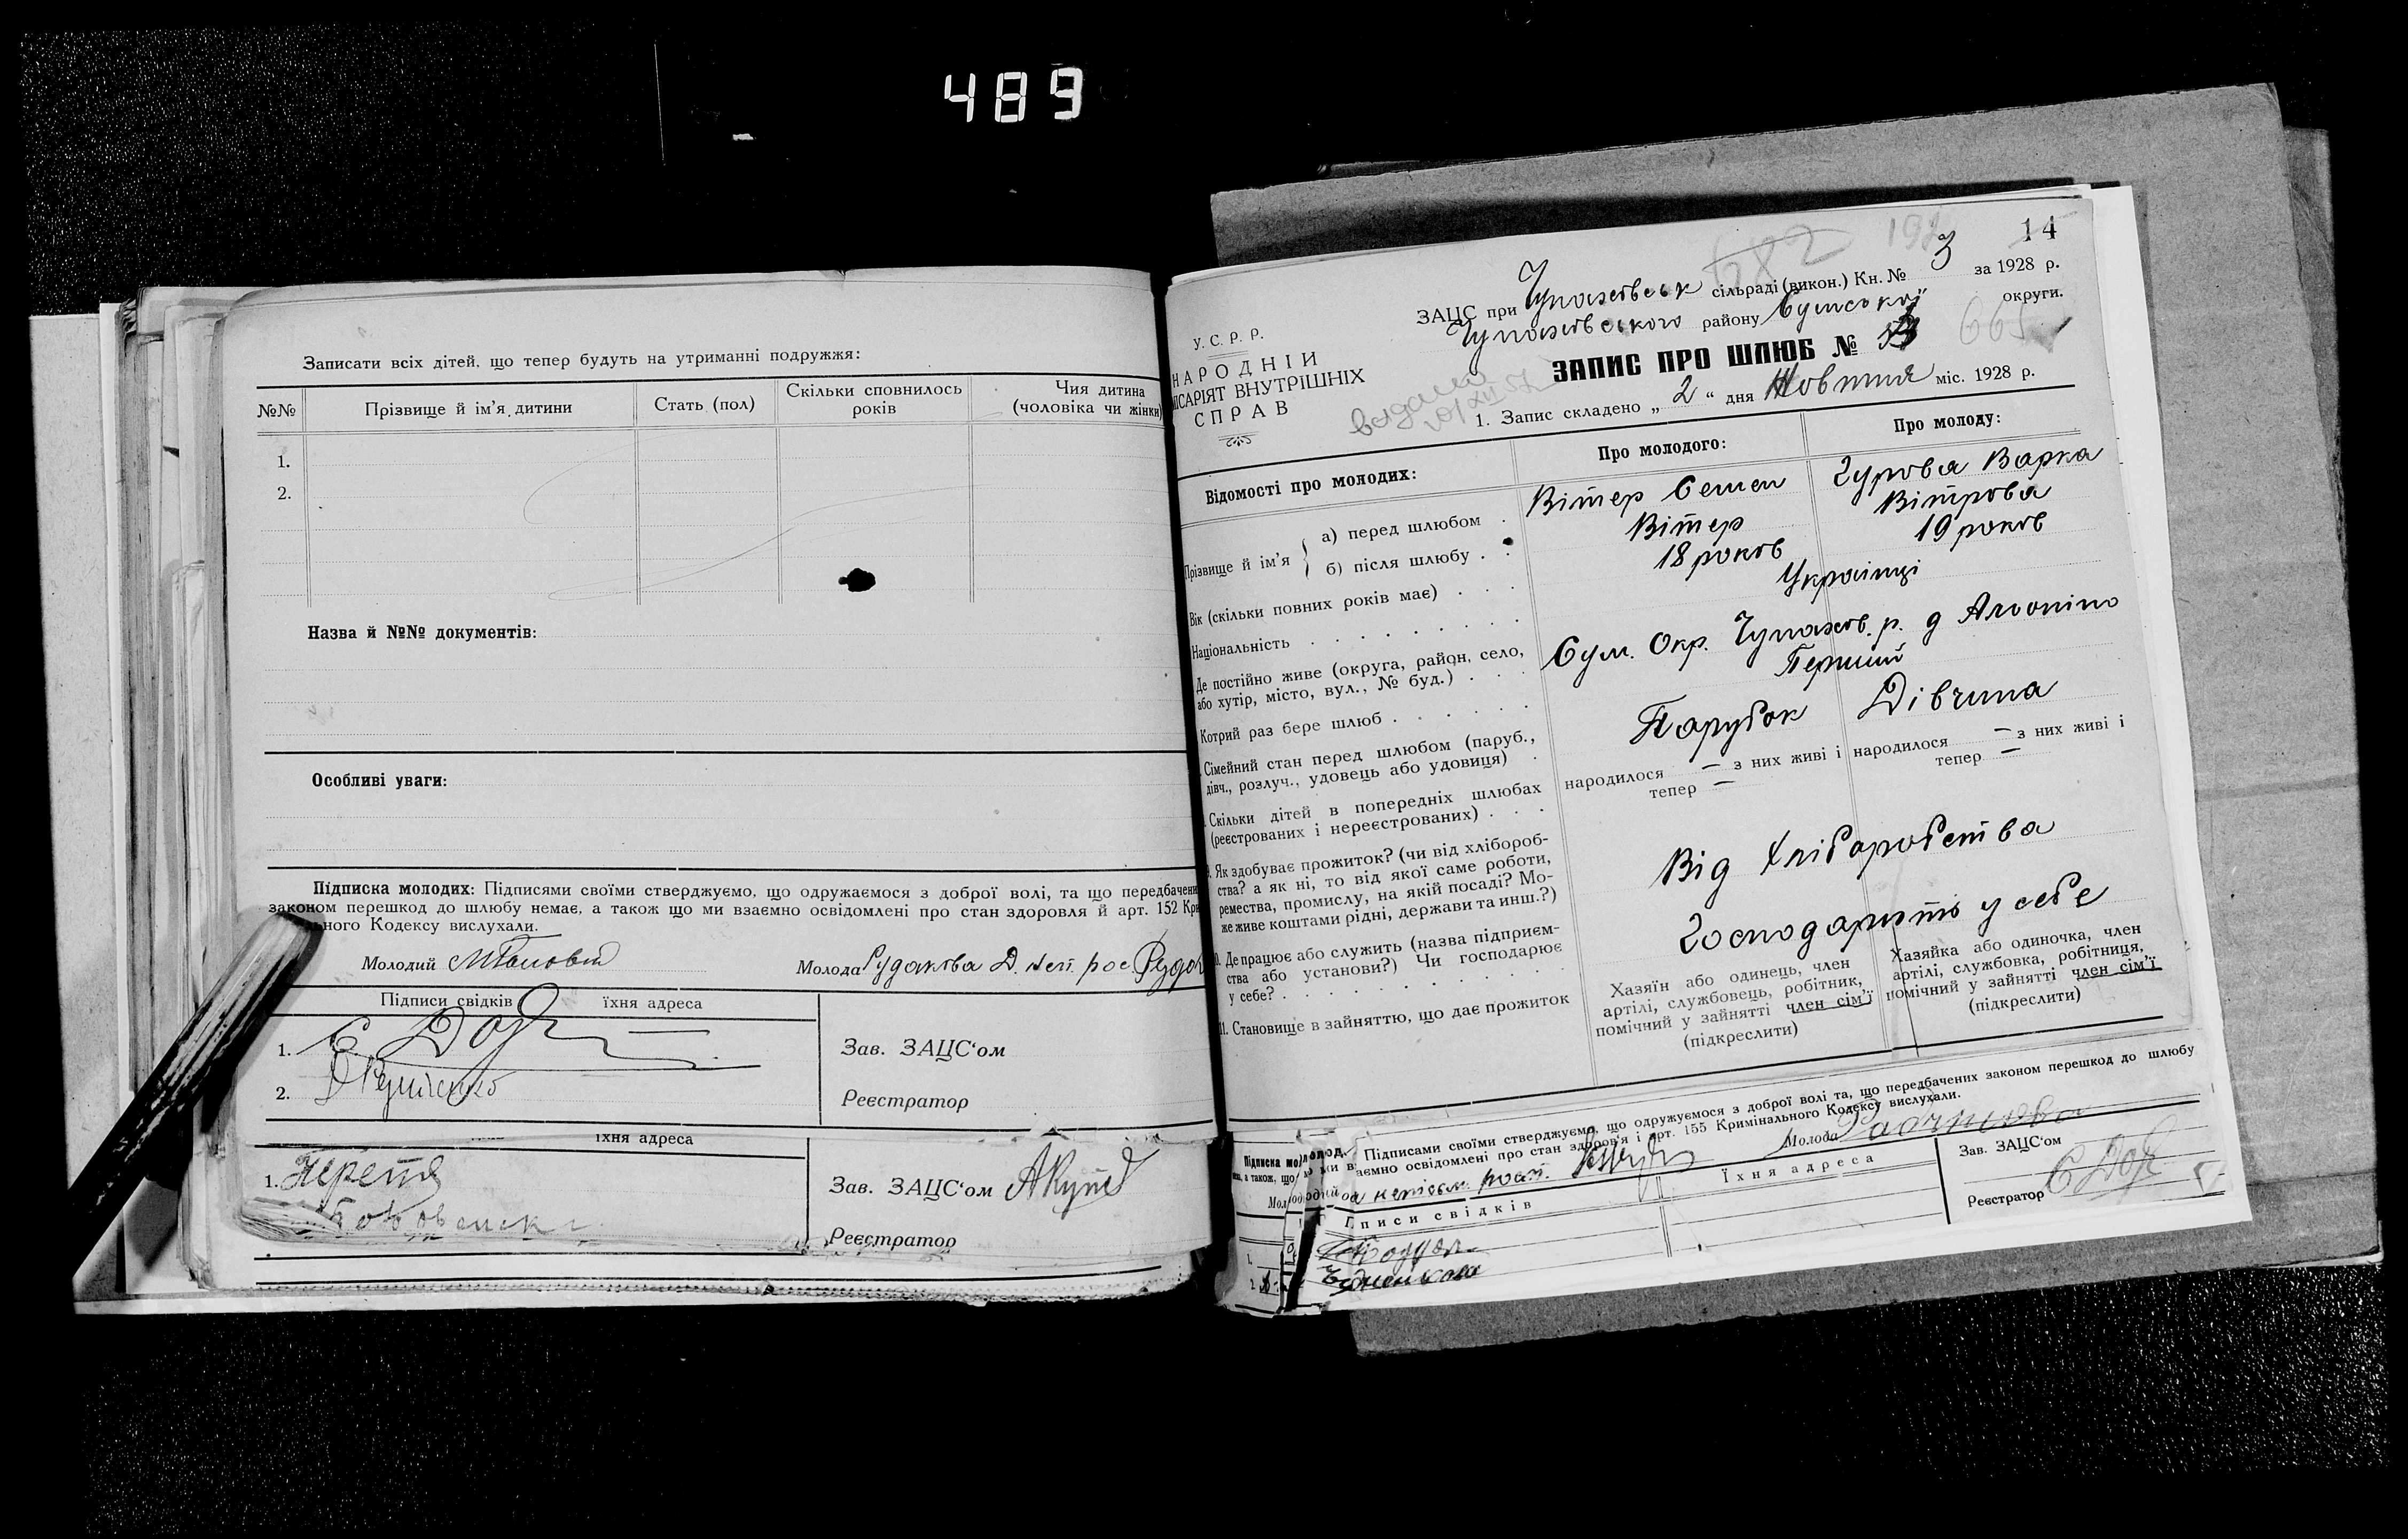 489
Записати всіх дітей, що тепер будуть на утриманні подружжя:
№№ Прізвище й ім'я дитини Стать (пол) Скільки сповнилось років Чия дитина (чоловіка чи жінки)
1.
2.
Назва й №№ документів:
Особливі уваги:
Підписка молодих: Підписями своїми стверджуємо, що одружаємося з доброї волі, та що передбачени
законом перешкод до шлюбу немає, а також що ми взаємно освідомлені про стан здоровля й арт. 152 Кри
ного Кодексу вислухали.
Молодий Молода Рудакова Д.
Підписи свідків їхня адреса
1.
2.
Зав. ЗАЦС'ом
Реєстратор
їхня адреса
1.
Зав. ЗАЦС'ом
Реєстратор
14
682
У. С. Р. Р.
НАРОДНІЙ
ІСАРІЯТ ВНУТРІШНІХ
СПРАВ
ЗАЦС при Чупахівськ сільраді (викон.) Кн. № 3 за 1928 р.
Чупахівського району Сумської округи.
ЗАПИС ПРО ШЛЮБ №
665
1. Запис складено „ 2 “ дня Жовтня міс. 1928 р.
Відомості про молодих: Про молодого: Про молоду:
Прізвище й ім'я
а) перед шлюбом Вітер Семен Гурова Варка
б) після шлюбу Вітер Вітрова
Вік (скільки повних років має) 18 років 19 років
Національність Українці
Де постійно живе (округа, район, село,
або хутір, місто, вул., № буд.) Сум. Окр. Чупахів. р.
Котрий раз бере шлюб Перший
Сімейний стан перед шлюбом (паруб.,
дівч., розлуч., удовець або удовиця) Парубок Дівчина
Скільки дітей в попередніх шлюбах
(реєстрованих і нереєстрованих)
народилося — з них живі і
тепер —
народилося — з них живі і
тепер —
9. Як здобуває прожиток? (чи від хлібороб-
ства? а як ні, то від якої саме роботи,
ремества, промислу, на якій посаді? Мо-
же живе коштами рідні, держави та инш.?)
Від хліборобства
10. Де працює або служить (назва підприєм-
ства або установи?) Чи господарює
у себе?
Господарить у себе
11. Становище в зайняттю, що дає прожиток
Хазяїн або одинець, член
артілі, службовець, робітник,
помічний у зайнятті член сім'ї
(підкреслити)
Хазяйка або одиночка, член
артілі, службовка, робітниця,
помічний у зайнятті член сім'ї
(підкреслити)
Підписами своїми стверджуємо, що одружуємося з доброї волі та, що передбачених законом перешкод до шлюбу
аємно освідомлені про стан здоров'я і арт. 155 Кримінального Кодексу вислухали.
Молода
писи свідків Їхня адреса
Зав. ЗАЦС'ом
Реєстратор